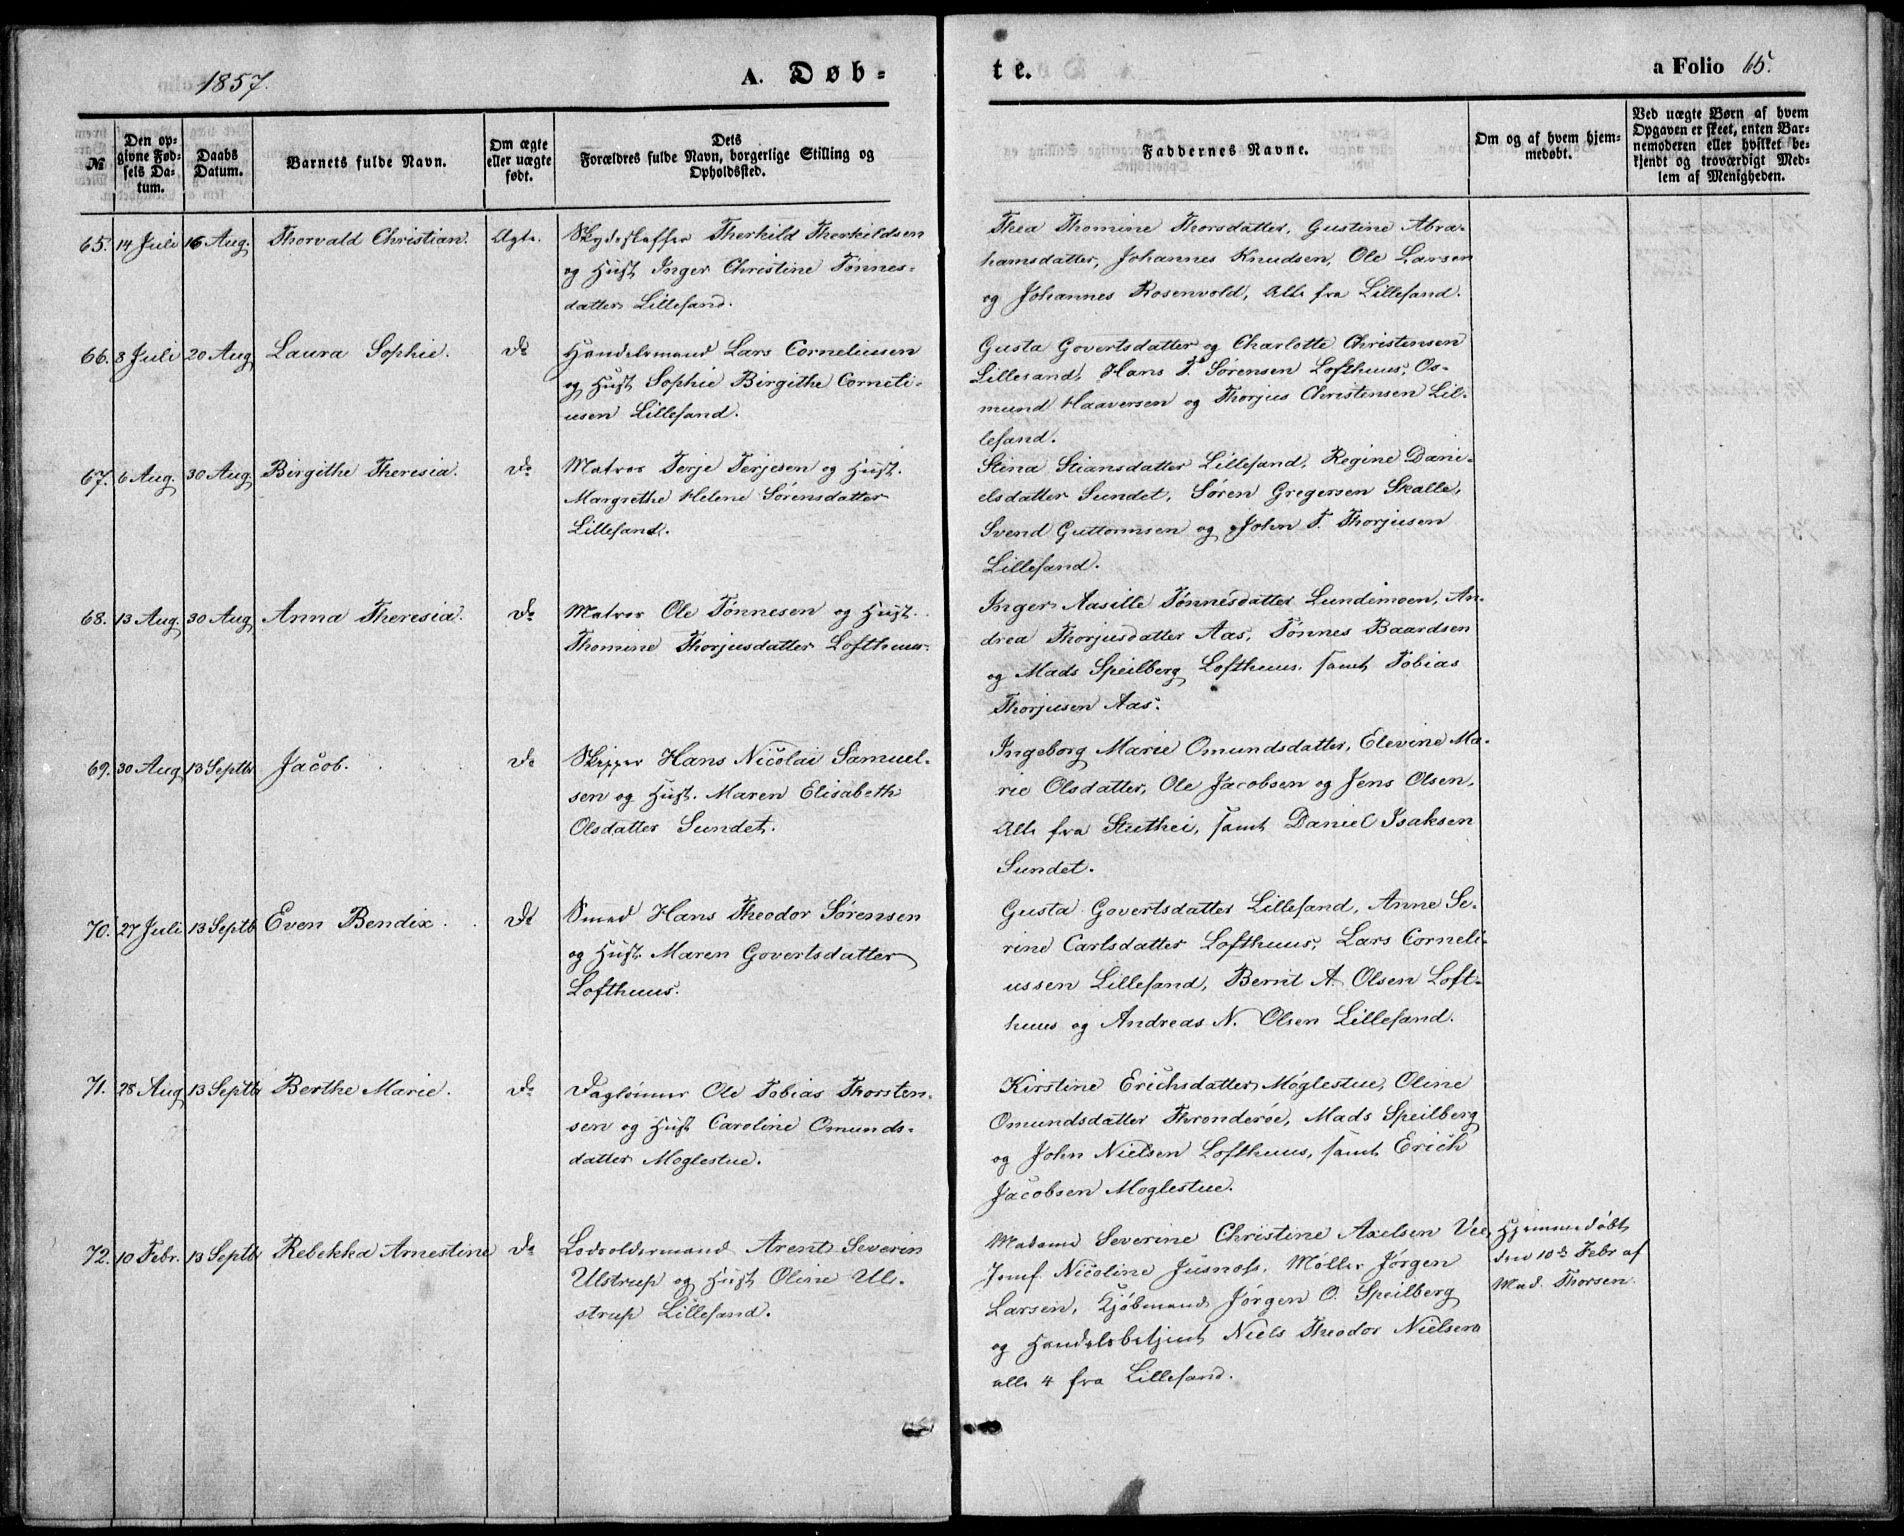 1857.
A. Døb-
te.
a Folio 65.
№
Den op-
givne Fød-
sels Da-
tum.
Daabs
Datum.
Barnets fulde Navn.
Om ægte
eller uægte
født.
Dets
Forældres fulde Navn, borgerlige Stilling og
Opholdssted.
Faddernes Navne.
Om og af hvem hjem-
medøbt.
Ved uægte Børn af hvem
Opgaven er skeet, enten Bar-
nemoderen eller hvilket be-
kjendt og troværdigt Med-
lem af Menigheden.
65. 14 Juli 16 Aug. Thorvald Christian. Ægte.
Skydsskaffer Therkild Therkildsen
og Hust Inger Christine Tønnes-
datter Lillesand.
Thea Thomine Thorsdatter, Gustine Abra-
hamsdatter, Johannes Knudsen, Ole Larsen
og Johannes Rosenvold, Alle fra Lillesand.
66. 8 Juli 20 Aug Laura Sophie. Do
Handelsmand Lars Corneliusen
og Hust Sophie Birgithe Corneli-
usen Lillesand.
Gusta Govertsdatter og Charlotte Christensen
Lillesand, Hans T. Sørensen Lofthuus, Os-
mund Haaversen og Thorjus Christensen Lil-
lesand.
67. 6 Aug. 30 Aug. Birgithe Theresia. Do
Matros Terje Terjesen og Hust.
Margrethe Helene Sørensdatter
Lillesand.
Stina Stiansdatter Lillesand, Regine Dani-
elsdatter Sundet, Søren Gregersen Skalle,
Svend Guttormsen og John T. Thorjusen
Lillesand.
68. 13 Aug. 30 Aug Anna Theresia. Do
Matros Ole Tønnesen og Hust.
Thomine Thorjusdatter Lofthuus.
Inger Aasille Tønnesdatter Lundemoen, An-
drea Thorjusdatter Aas, Tønnes Baardsen
og Mads Speilberg Lofthuus. samt Tobias
Thorjusen Aas.
69. 30 Aug 13 Septb Jacob. Do
Skipper Hans Nicolai Samuel-
sen og Hust. Maren Elisabeth
Olsdatter Sundet.
Ingeborg Marie Omundsdatter, Elevine Ma-
rie Olsdatter, Ole Jacobsen og Jens Olsen,
Alle fra Stuthei, samt Daniel Isaksen
Sundet.
70. 27 Juli 13 Septb Even Bendix. Do
Smed Hans Theodor Sørensen
og Hust. Maren Govertsdatter
Lofthuus.
Gusta Govertsdatter Lillesand, Anne Se-
rine Carlsdatter Lofthuus, Lars Corneli-
ussen Lillesand, Bernt A. Olsen Loft-
huus og Andreas N. Olsen Lillesand.
71. 28 Aug 13 Septb Berthe Marie. Do
Daglønner Ole Tobias Thorsten-
sen og Hust Caroline Omunds-
datter Moglestue.
Kirstine Erichsdatter Møglestue, Oline
Omundsdatter Thronderøe, Mads Speilberg
og John Nielsen Lofthuus, samt Erich
Jacobsen Moglestue.
72. 10 Febr. 13 Septb Rebekka Arnestine Do
Lodsoldermand Arent Severin
Ulstrup og Hust Oline Ul-
strup Lillesand.
Madame Severine Christine Axelsen Vee,
Jomf. Nicoline Møller Jørgen
Larsen, Kjøbmand Jørgen O. Speilberg
og Handelsbetjent Niels Theodor Nielsen
alle 4 fra Lillesand.
Hjemmedøbt
den 10de Febr af
Mad. Thorsen.